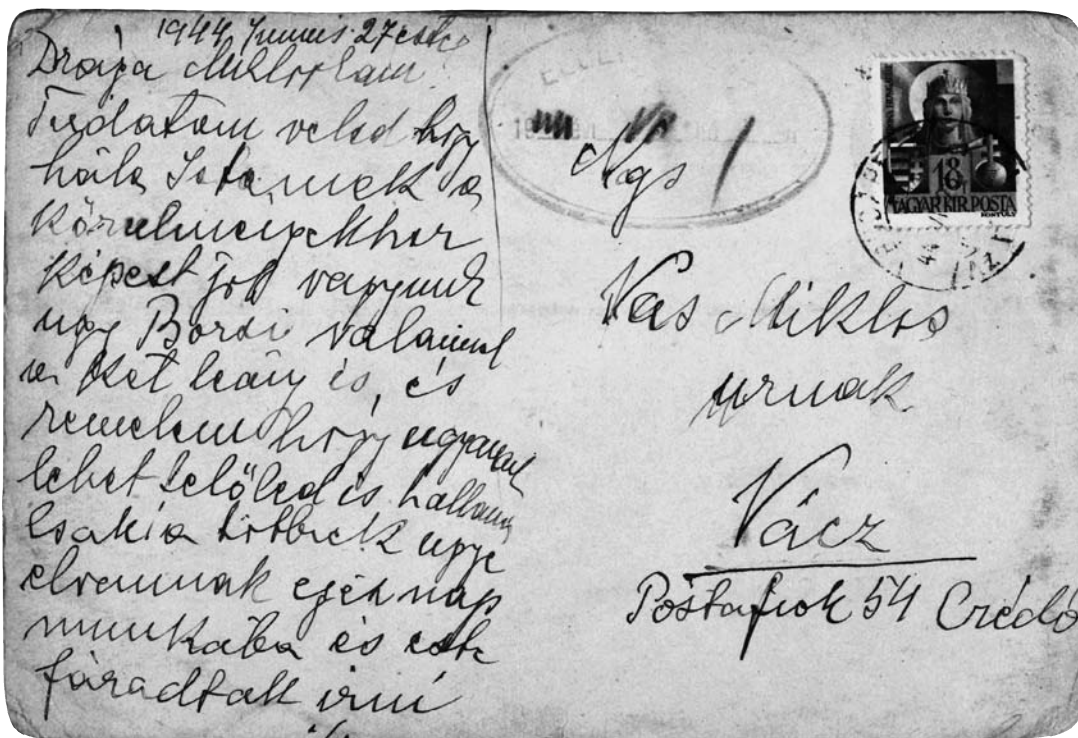 1944, Junius 27 este
Drága Mikloskam!
Tudatom veled hogy
hála Istennek a
körulmenyekhez
képest jól vagyunk
ugy Borsi valamint
a két leány is, és
remelem hogy ugyanezt
lehet felőled is hallani
Csak a többiek ugye
elvannak egész nap
munkába és este
fáradtak irni
Ngs
Vas Miklos
urnak
Vácz
Postafiok 54 Crédó
18
MAGYAR KIR. POSTA